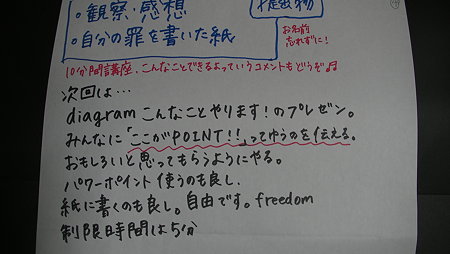 ・観察・感想
・自分の罪を書いた紙
提出物
お名前
忘れずに!
10分間講座、こんなことできるよっていうコメントもどうぞ♬
次回は…
diagram こんなことやります!のプレゼン。
みんなに「ここがPOINT!!」ってゆうのを伝える。
おもしろいと思ってもらうようにやる。
パワーポイント使うのも良し、
紙に書くのも良し。自由です。freedom
制限時間は5分